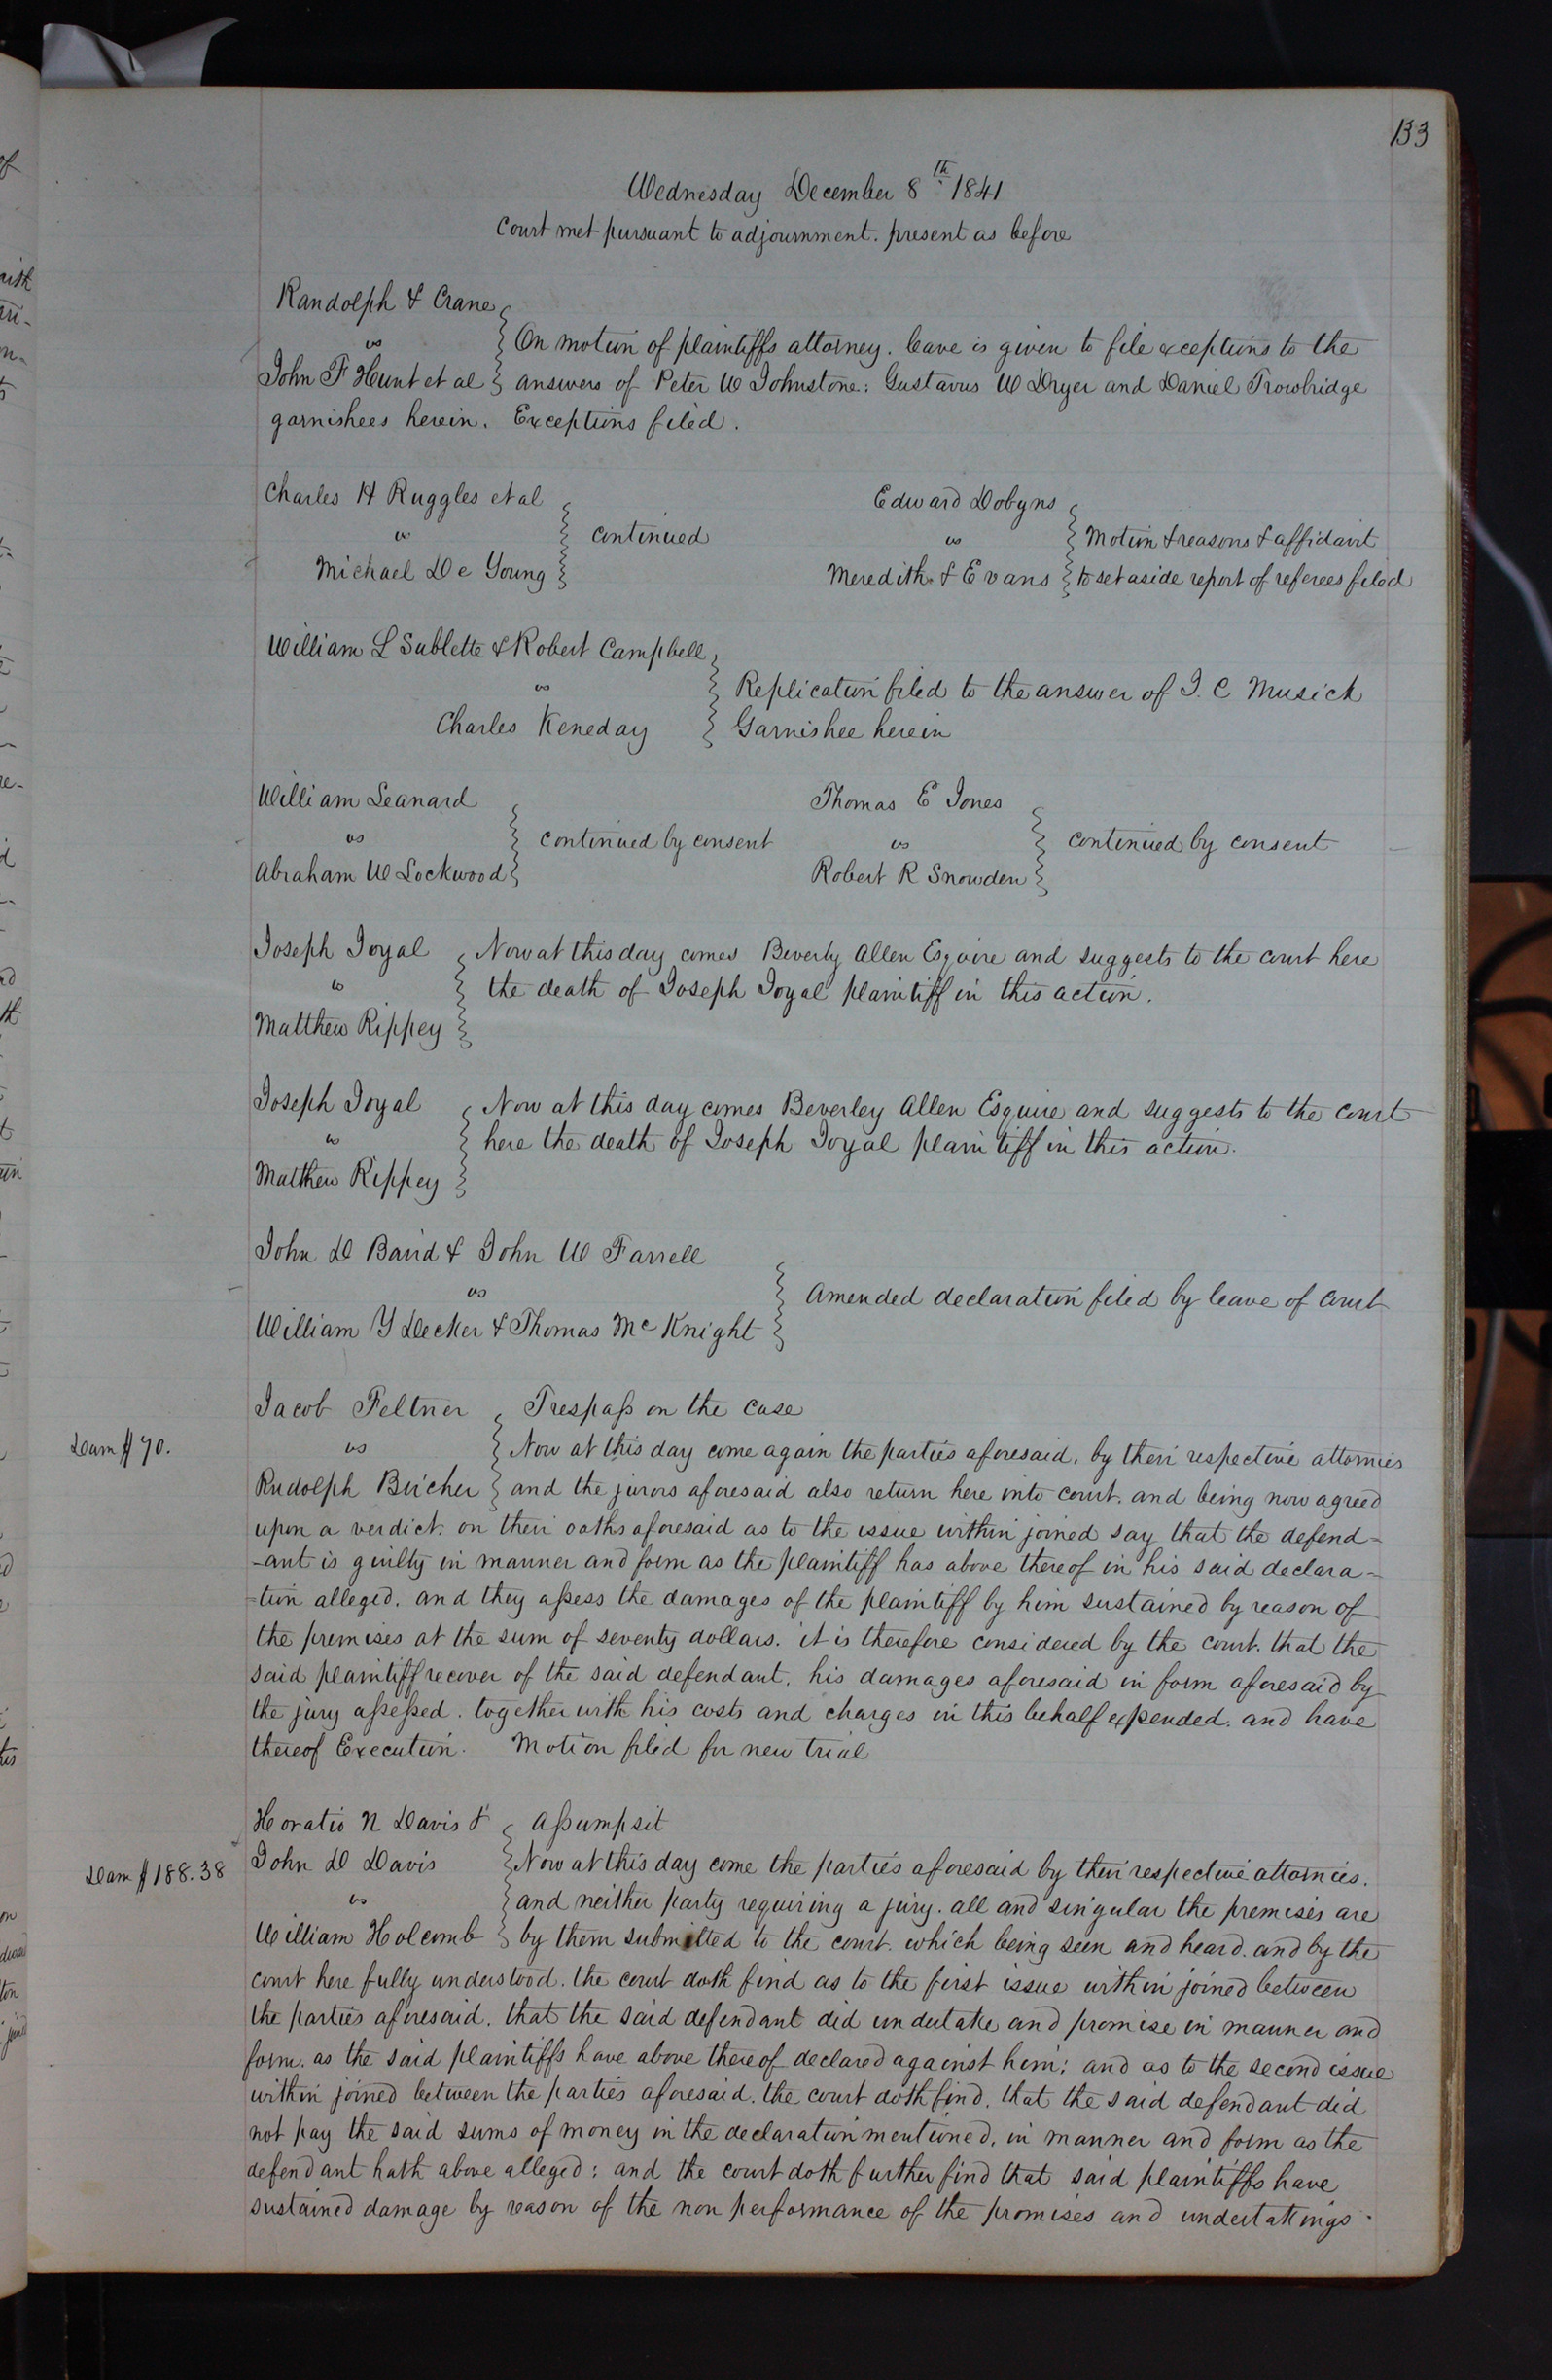 133
Wednesday December 8th 1841
Court met pursuant to adjournment. present as before
Randolph & Crane
vs
On motion of plaintiffs attorney. leave is given to file exceptions to the
John F Hunt et al answers of Peter W Johnstone: Gustavus W Dryer and Daniel Trowbridge
garnishees herein. Exceptions filed.
Charles H Ruggles et al
vs
continued
Michael De Young
Edward Dobyns
vs
Motion & reasons & affidavit
Meredith & Evans to set aside report of referees filed
William L Sublette & Robert Campbell
vs
Replication filed to the answer of J. C Musick
Charles Keneday Garnishee herein
William Leanard
vs
continued by consent
Abraham W Lockwood
Thomas E Jones
vs
continued by consent
Robert R Snowden
Joseph Joyal Now at this day comes Beverly Allen Esquire and suggests to the court here
vs the death of Joseph Joyal plaintiff in this action.
Matthew Rippey
Joseph Joyal Now at this day comes Beverley Allen Esquire and suggests to the court
vs here the death of Joseph Joyal plaintiff in this action.
Matthew Rippey
John D Baird & John W Farrell
vs
Amended declaration filed by leave of Court
William Y Decker & Thomas Mc Knight
Jacob Feltner Trespass on the case
Dam $70.
vs Now at this day come again the parties aforesaid, by their respective attornies
Rudolph Bircher and the jurors aforesaid also return here into court. and being now agreed
upon a verdict. on their oaths aforesaid as to the issue within joined say that the defend-
-ant is guilty in manner and form as the plaintiff has above thereof in his said declara-
-tion alleged. and they assess the damages of the plaintiff by him sustained by reason of
the premises at the sum of seventy dollars. it is therefore considered by the court. that the
said plaintiff recover of the said defendant. his damages aforesaid in form aforesaid by
the jury assessed. together with his costs and charges in this behalf expended. and have
thereof Execution. Motion filed for new trial
Horatio N Davis & Assumpsit
Dam $188.38
John D Davis Now at this day come the parties aforesaid by their respective attornies.
vs and neither party requiring a jury. all and singular the premises are
William Holcomb by them submitted to the court. which being seen and heard. and by the
court here fully understood. the court doth find as to the first issue within joined between
the parties aforesaid. that the said defendant did undertake and promise in manner and
form. as the said plaintiffs have above thereof declared against him: and as to the second issue
within joined between the parties aforesaid. the court doth find, that the said defendant did
not pay the said sums of money in the declaration mentioned, in manner and form as the
defendant hath above alleged: and the court doth further find that said plaintiffs have
sustained damage by reason of the non performance of the promises and undertakings